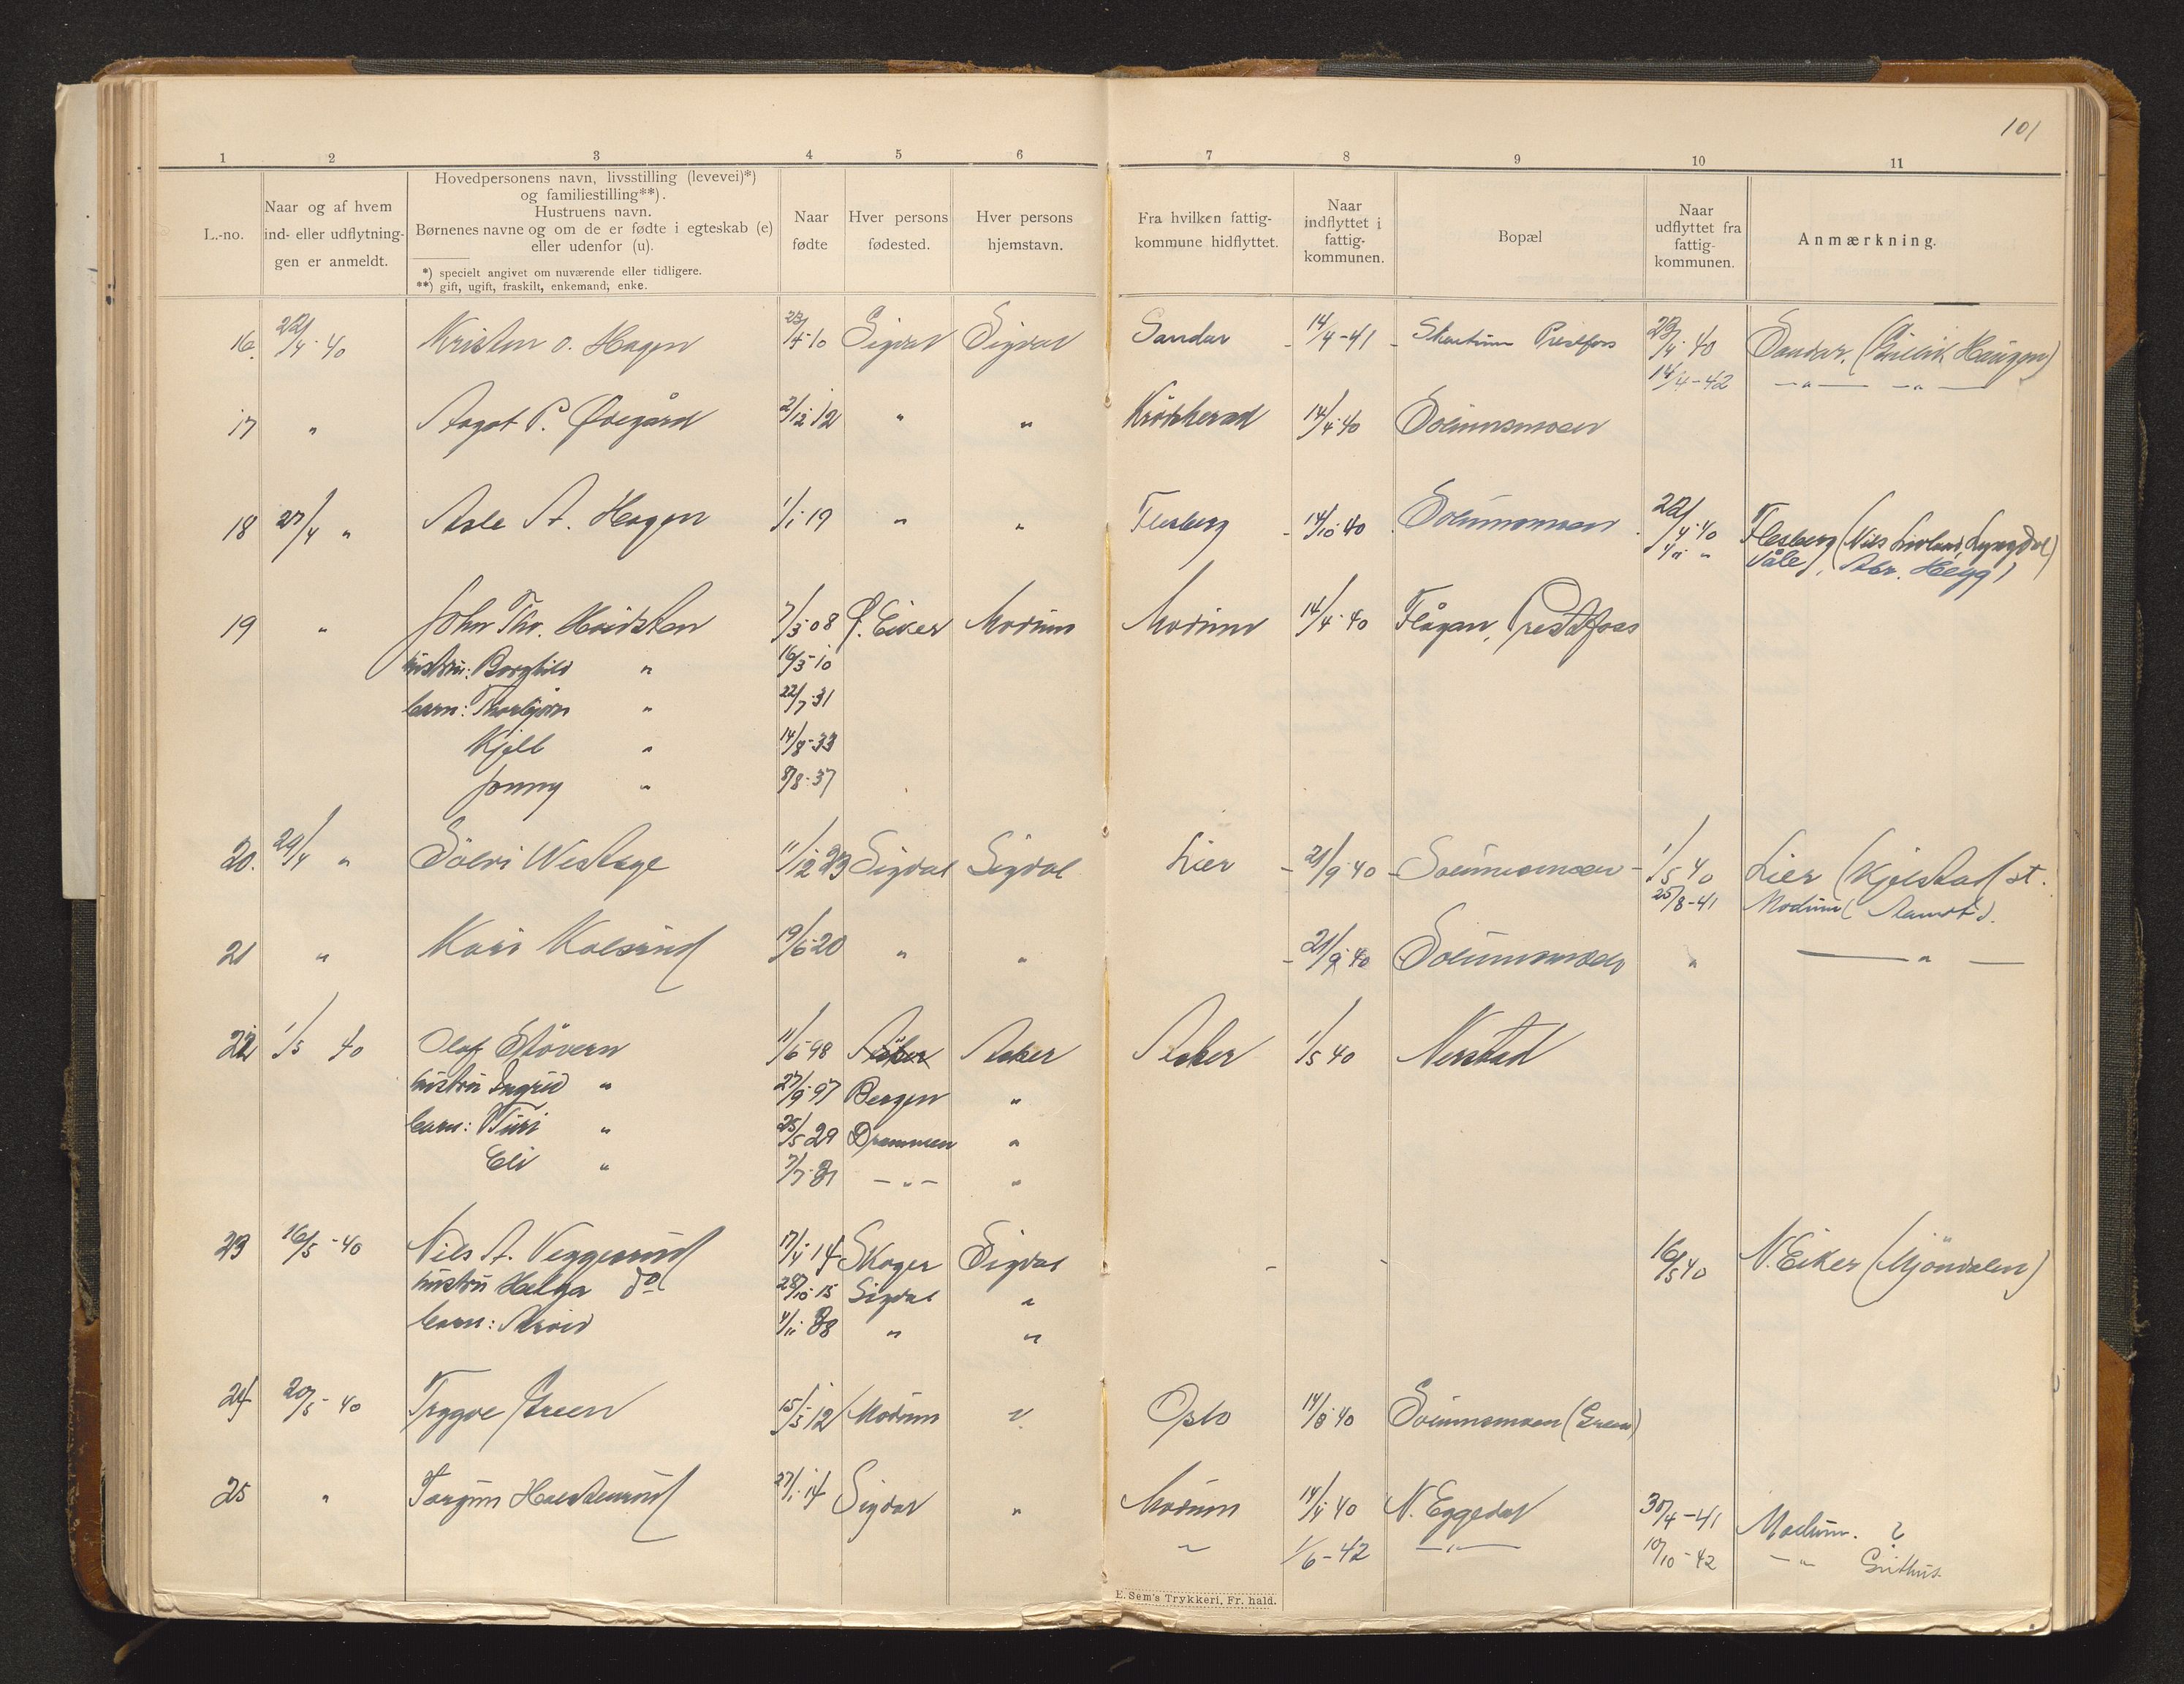 101
1 2 3 4 5 6 7 8 9 10 11
L.-no.
Naar og af hvem
ind- eller udflytnin-
gen er anmeldt.
Hovedpersonens navn, livsstilling (levevei)*)
og familiestilling**).
Hustruens navn.
Børnenes navne og om de er fødte i egteskab (e)
eller udenfor (u).
*) specielt angivet om nuværende eller tidligere.
**) gift, ugift, fraskilt, enkemand, enke.
Naar
fødte
Hver persons
fødested.
Hver persons
hjemstavn.
Fra hvilken fattig-
kommune hidflyttet.
Naar
indflyttet i
fattig-
kommunen.
Bopæl
Naar
udflyttet fra
fattig-
kommunen.
Anmærkning.
16. 22/4-40 Kristen O. Hagen 23/4-10 Sigdal Sigdal Sandar - 14/4-41 - Prestfoss 23/4-40 Sandar. (Haugen)
14/4-42 —"— —"—
17 " Aagot P. Øvegård 2/12-12 " " Krödsherad 14/4-40 Solumsmoen
18 27/4 " Asle A. Hagen 1/1 19 " " Flesberg - 14/10-40 Solumsmoen 22/4-40 Flesberg (Nils Lyngdal)
Våle, (Abr. Hegg)
19 " John Thv. Hoidsten 7/3-08 Ø. Eiker Modum Modum 14/4-40 Flågan, Prestfoss
hustru: Borghild " 16/3-10
barn: Thorbjörn " 22/7-31
Kjell " 14/8-33
Jonny " 8/8-37
20. 29/4 " Sölvi Westage 11/12 23 Sigdal Sigdal Lier - 21/9-40 - Solumsmoen - 1/5 40 Lier (Kjelstad st.
25/8-41 Modum (Aamot).
21 " Kari Kolsrud 19/6-20 " " - 21/9-40 Solumsmoen " —"—
22 1/5 40 Olaf Stövern 11/6-98 Asker Asker 1/5 40 Nerstad
hustru Ingrid " 27/9-97 Bergen "
barn: Turi " 25/5 29 Drammen "
Eli " 7/7-31 —"— "
23 16/5-40 Nils A. Veggerud 17/4-14 Skoger Sigdal - - 16/5 40 N. Eiker (Mjöndalen)
hustru Helga do 28/10-15 Sigdal "
barn: Arvid 4/11-38 " "
24 20/5-40 Tryggve Green 15/5-12 Modum " Oslo 14/8-40 Solumsmoen (Green)
25 " Torgun Halstenrud 27/1-14 Sigdal " Modum 14/4 40 N. Eggedal 30/4-41 Modum. ?
" 1/6-42 —"— 10/10-42 —"— Geithus
E. Sem's Trykkeri, Fr. hald.